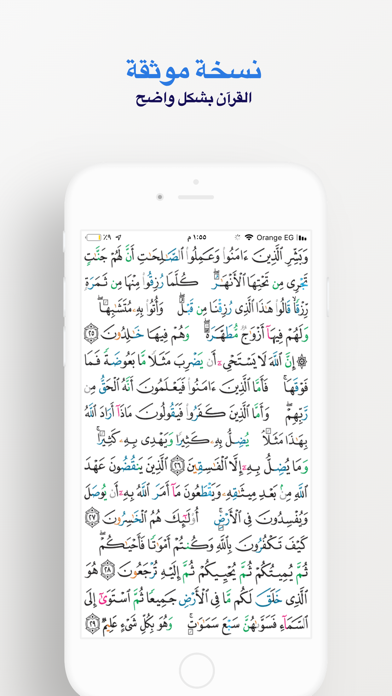 نسخة موثقة
القرآن بشكل واضح
٩٪ ١:٥٥ م Orange EG
وَبَشِّرِ ٱلَّذِينَ ءَامَنُوا۟ وَعَمِلُوا۟ ٱلصَّـٰلِحَـٰتِ أَنَّ لَهُمْ جَنَّـٰتٍ
تَجْرِى مِن تَحْتِهَا ٱلْأَنْهَـٰرُ ۖ كُلَّمَا رُزِقُوا۟ مِنْهَا مِن ثَمَرَةٍ
رِّزْقًا ۙ قَالُوا۟ هَـٰذَا ٱلَّذِى رُزِقْنَا مِن قَبْلُ ۖ وَأُتُوا۟ بِهِۦ مُتَشَـٰبِهًا ۖ
وَلَهُمْ فِيهَآ أَزْوَٰجٌ مُّطَهَّرَةٌ ۖ وَهُمْ فِيهَا خَـٰلِدُونَ ٢٥
۞ إِنَّ ٱللَّهَ لَا يَسْتَحْىِۦٓ أَن يَضْرِبَ مَثَلًا مَّا بَعُوضَةً فَمَا
فَوْقَهَا ۚ فَأَمَّا ٱلَّذِينَ ءَامَنُوا۟ فَيَعْلَمُونَ أَنَّهُ ٱلْحَقُّ مِن
رَّبِّهِمْ ۖ وَأَمَّا ٱلَّذِينَ كَفَرُوا۟ فَيَقُولُونَ مَاذَآ أَرَادَ ٱللَّهُ
بِهَـٰذَا مَثَلًا ۘ يُضِلُّ بِهِۦ كَثِيرًا وَيَهْدِى بِهِۦ كَثِيرًا ۚ
وَمَا يُضِلُّ بِهِۦٓ إِلَّا ٱلْفَـٰسِقِينَ ٢٦ ٱلَّذِينَ يَنقُضُونَ عَهْدَ
ٱللَّهِ مِنۢ بَعْدِ مِيثَـٰقِهِۦ وَيَقْطَعُونَ مَآ أَمَرَ ٱللَّهُ بِهِۦٓ أَن يُوصَلَ
وَيُفْسِدُونَ فِى ٱلْأَرْضِ ۚ أُو۟لَـٰٓئِكَ هُمُ ٱلْخَـٰسِرُونَ ٢٧
كَيْفَ تَكْفُرُونَ بِٱللَّهِ وَكُنتُمْ أَمْوَٰتًا فَأَحْيَـٰكُمْ ۖ
ثُمَّ يُمِيتُكُمْ ثُمَّ يُحْيِيكُمْ ثُمَّ إِلَيْهِ تُرْجَعُونَ ٢٨ هُوَ
ٱلَّذِى خَلَقَ لَكُم مَّا فِى ٱلْأَرْضِ جَمِيعًا ثُمَّ ٱسْتَوَىٰٓ إِلَى
ٱلسَّمَآءِ فَسَوَّىٰهُنَّ سَبْعَ سَمَـٰوَٰتٍ ۚ وَهُوَ بِكُلِّ شَىْءٍ عَلِيمٌ ٢٩